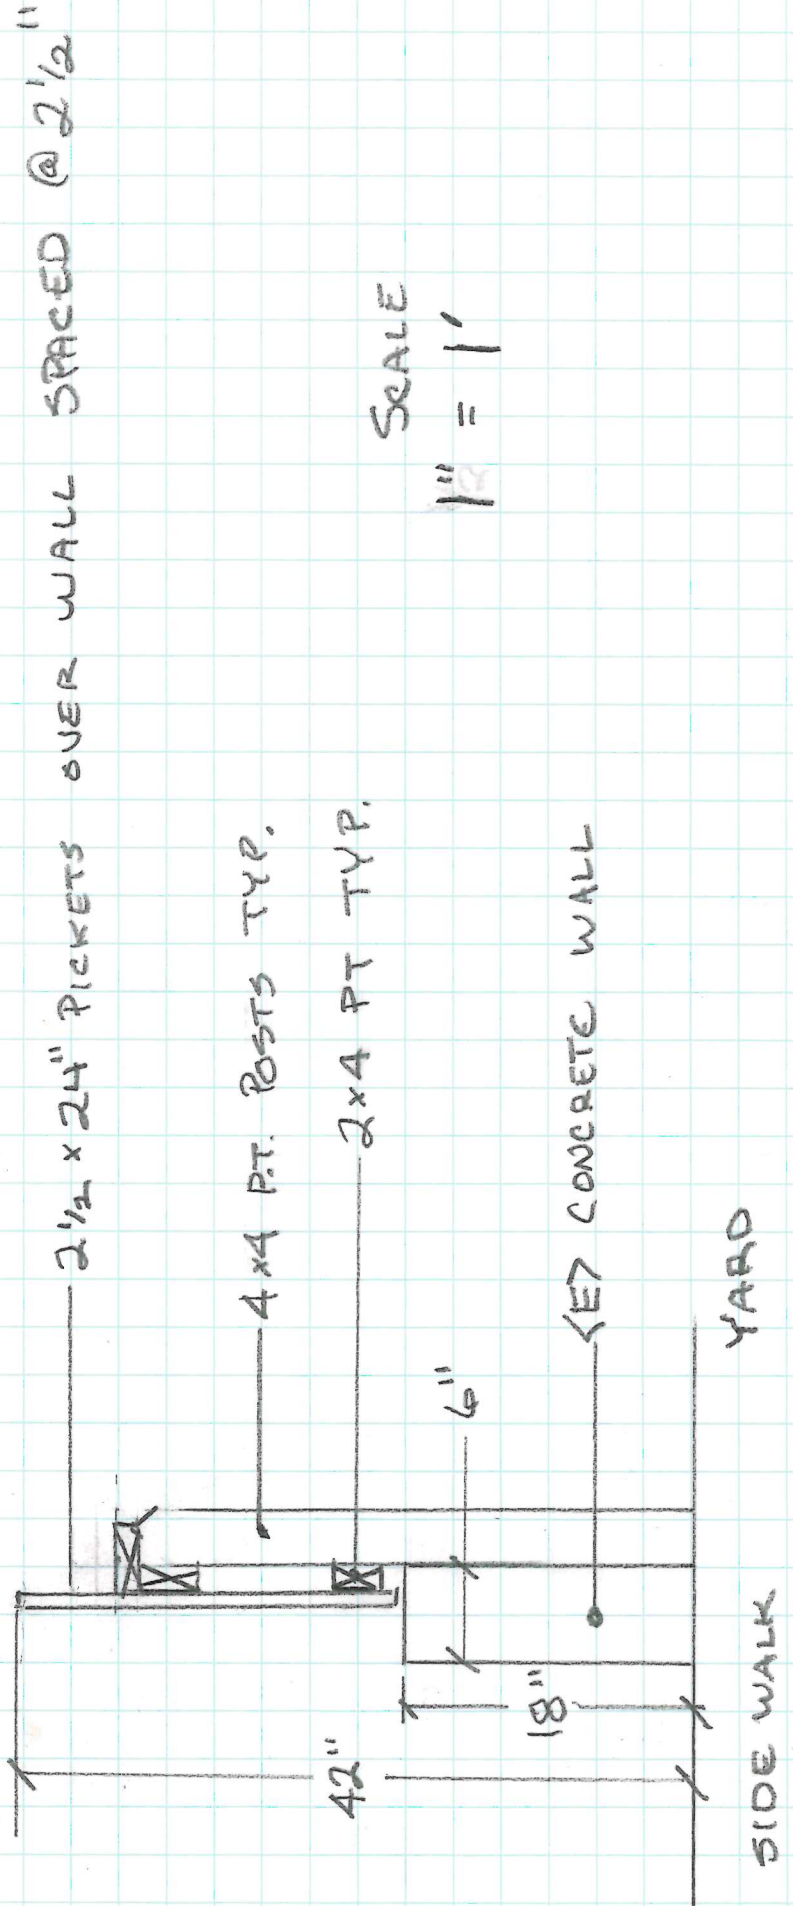 2 1/2 x 24" PICKETS OVER WALL SPACED @ 2 1/2"
4x4 P.T. POSTS TYP.
2x4 PT TYP.
SCALE
1" = 1'
6"
<E> CONCRETE WALL
42"
18"
SIDE WALK
YARD